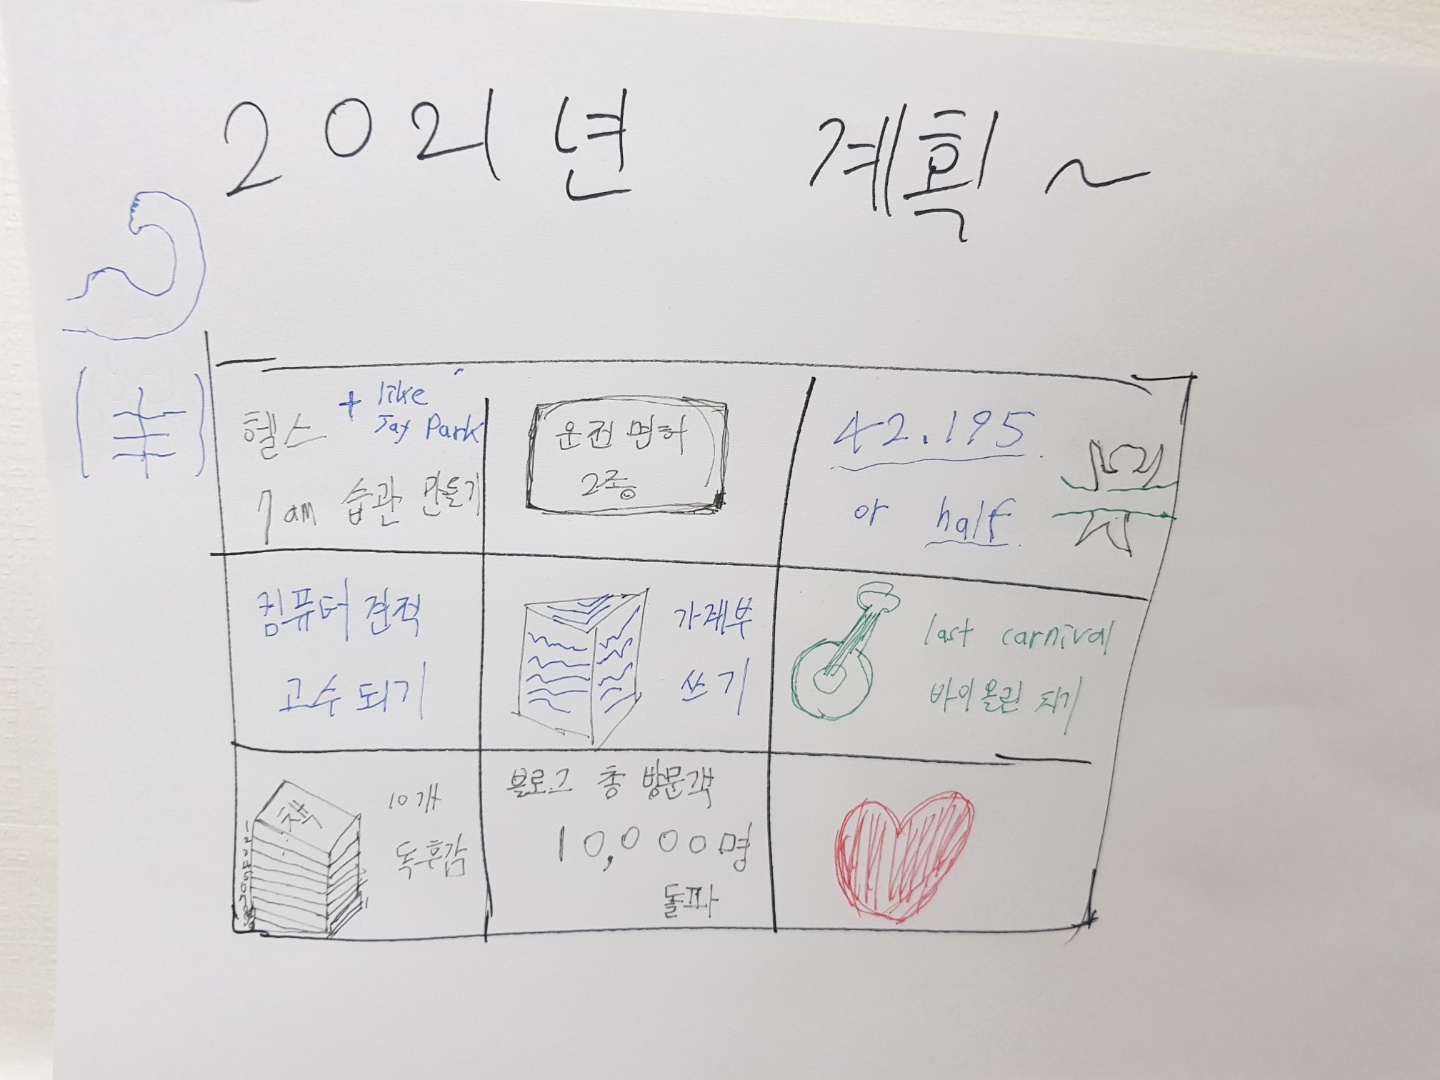 2021년 계획~
헬스 + like
Jay Park
7am 습관 만들기
운전면허
2종
42.195
or half
컴퓨터 견적
고수 되기
가계부
쓰기
last carnival
바이올린 되기
책
10개
독후감
블로그 총 방문객
10,000명
돌파